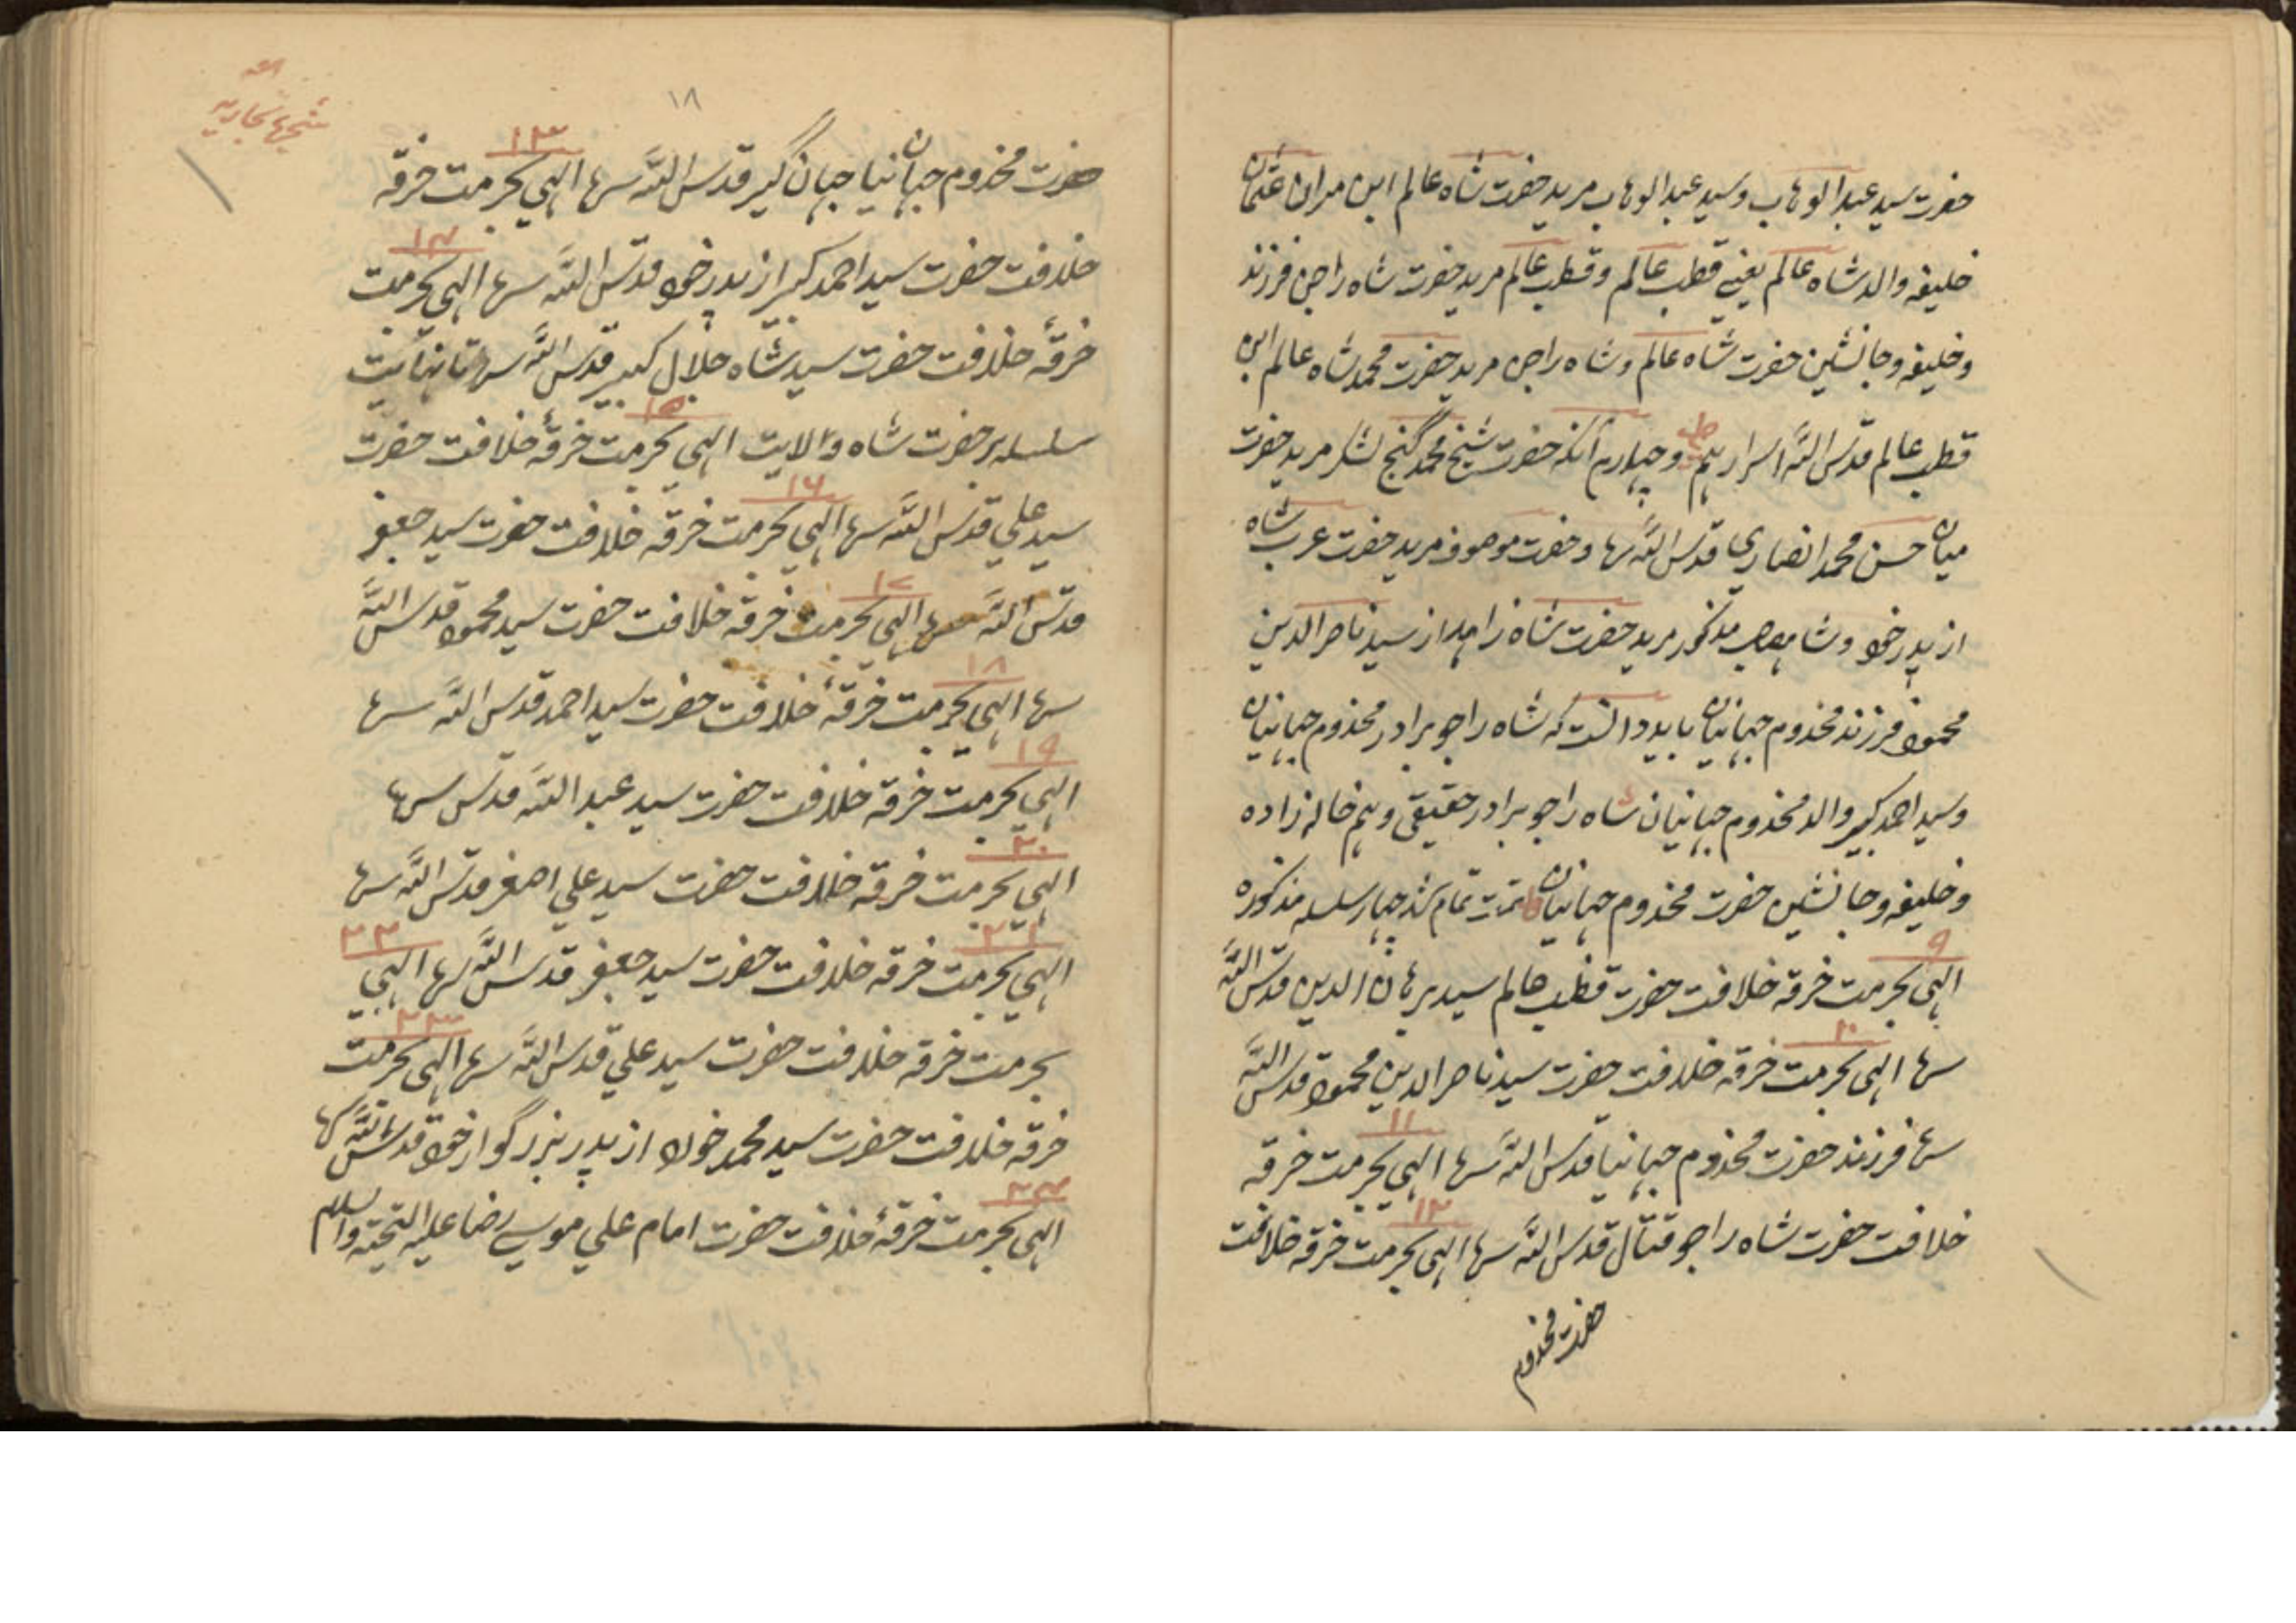 حضرت سید عبدالوهاب و سید عبدالوهاب مرید حضرت شاه عالم ابن میران عثمان
خلیفه والد شاه عالم یعنی قطب عالم و قطب عالم مرید حضرت شاه راجن فرزند
و خلیفه و جانشین حضرت شاه عالم و شاه راجن مرید حضرت محمد شاه عالم ابن
قطب عالم قدس الله اسرارهم و چهارم آنکه حضرت شیخ محمد گنج لشکر مرید حضرت
میان حسن محمد انصاری قدس الله سرها و حضرت موصوف مرید حضرت عرب شاه
از پدر خود و شاه مذکور مرید حضرت شاه زاهد از سید ناصرالدین
محمود فرزند مخدوم جهانیان باید دانست که شاه راجو برادر مخدوم جهانیان
و سید احمد کبیر والد مخدوم جهانیان شاه راجو برادر حقیقی و هم خاله زاده
و خلیفه و جانشین حضرت مخدوم جهانیان تمت تمام شد چهار سلسله مذکوره
۹
الهی بحرمت خرقه خلافت حضرت قطب عالم سید برهان الدین قدس الله
۱۰
سرها الهی بحرمت خرقه خلافت حضرت سید ناصرالدین محمود قدس الله
۱۱
سرها فرزند حضرت مخدوم جهانیا قدس الله سرها الهی بحرمت خرقه
۱۲
خلافت حضرت شاه راجو قتال قدس الله سرها الهی بحرمت خرقه خلافت
حضرت مخدوم
۱۸
۱۳
حضرت مخدوم جهانیان جهان گیر قدس الله سرها الهی بحرمت خرقه
۱۴
خلافت حضرت سید احمد کبیر از پدر خود قدس الله سرها الهی بحرمت
خرقهٔ خلافت حضرت سید شاه جلال کبیر قدس الله سرها تا نهایت
۱۵
سلسله بر حضرت شاه ولایت الهی بحرمت خرقهٔ خلافت حضرت
۱۶
سید علی قدس الله سرها الهی بحرمت خرقه خلافت حضرت سید جعفر
۱۷
قدس الله سرها الهی بحرمت خرقه خلافت حضرت سید محمود قدس الله
۱۸
سرها الهی بحرمت خرقهٔ خلافت حضرت سید احمد قدس الله سرها
۱۹
الهی بحرمت خرقه خلافت حضرت سید عبدالله قدس سرها
۲۰
الهی بحرمت خرقه خلافت حضرت سید علی اصغر قدس الله سرها
۲۱ ۲۲
الهی بحرمت خرقه خلافت حضرت سید جعفر قدس الله سرها الهی
۲۳
بحرمت خرقه خلافت حضرت سید علی قدس الله سرها الهی بحرمت
خرقه خلافت حضرت سید محمد خود از پدر بزرگوار خود قدس الله سرها
۲۴
الهی بحرمت خرقهٔ خلافت حضرت امام علی موسی رضا علیه التحیة والسلام